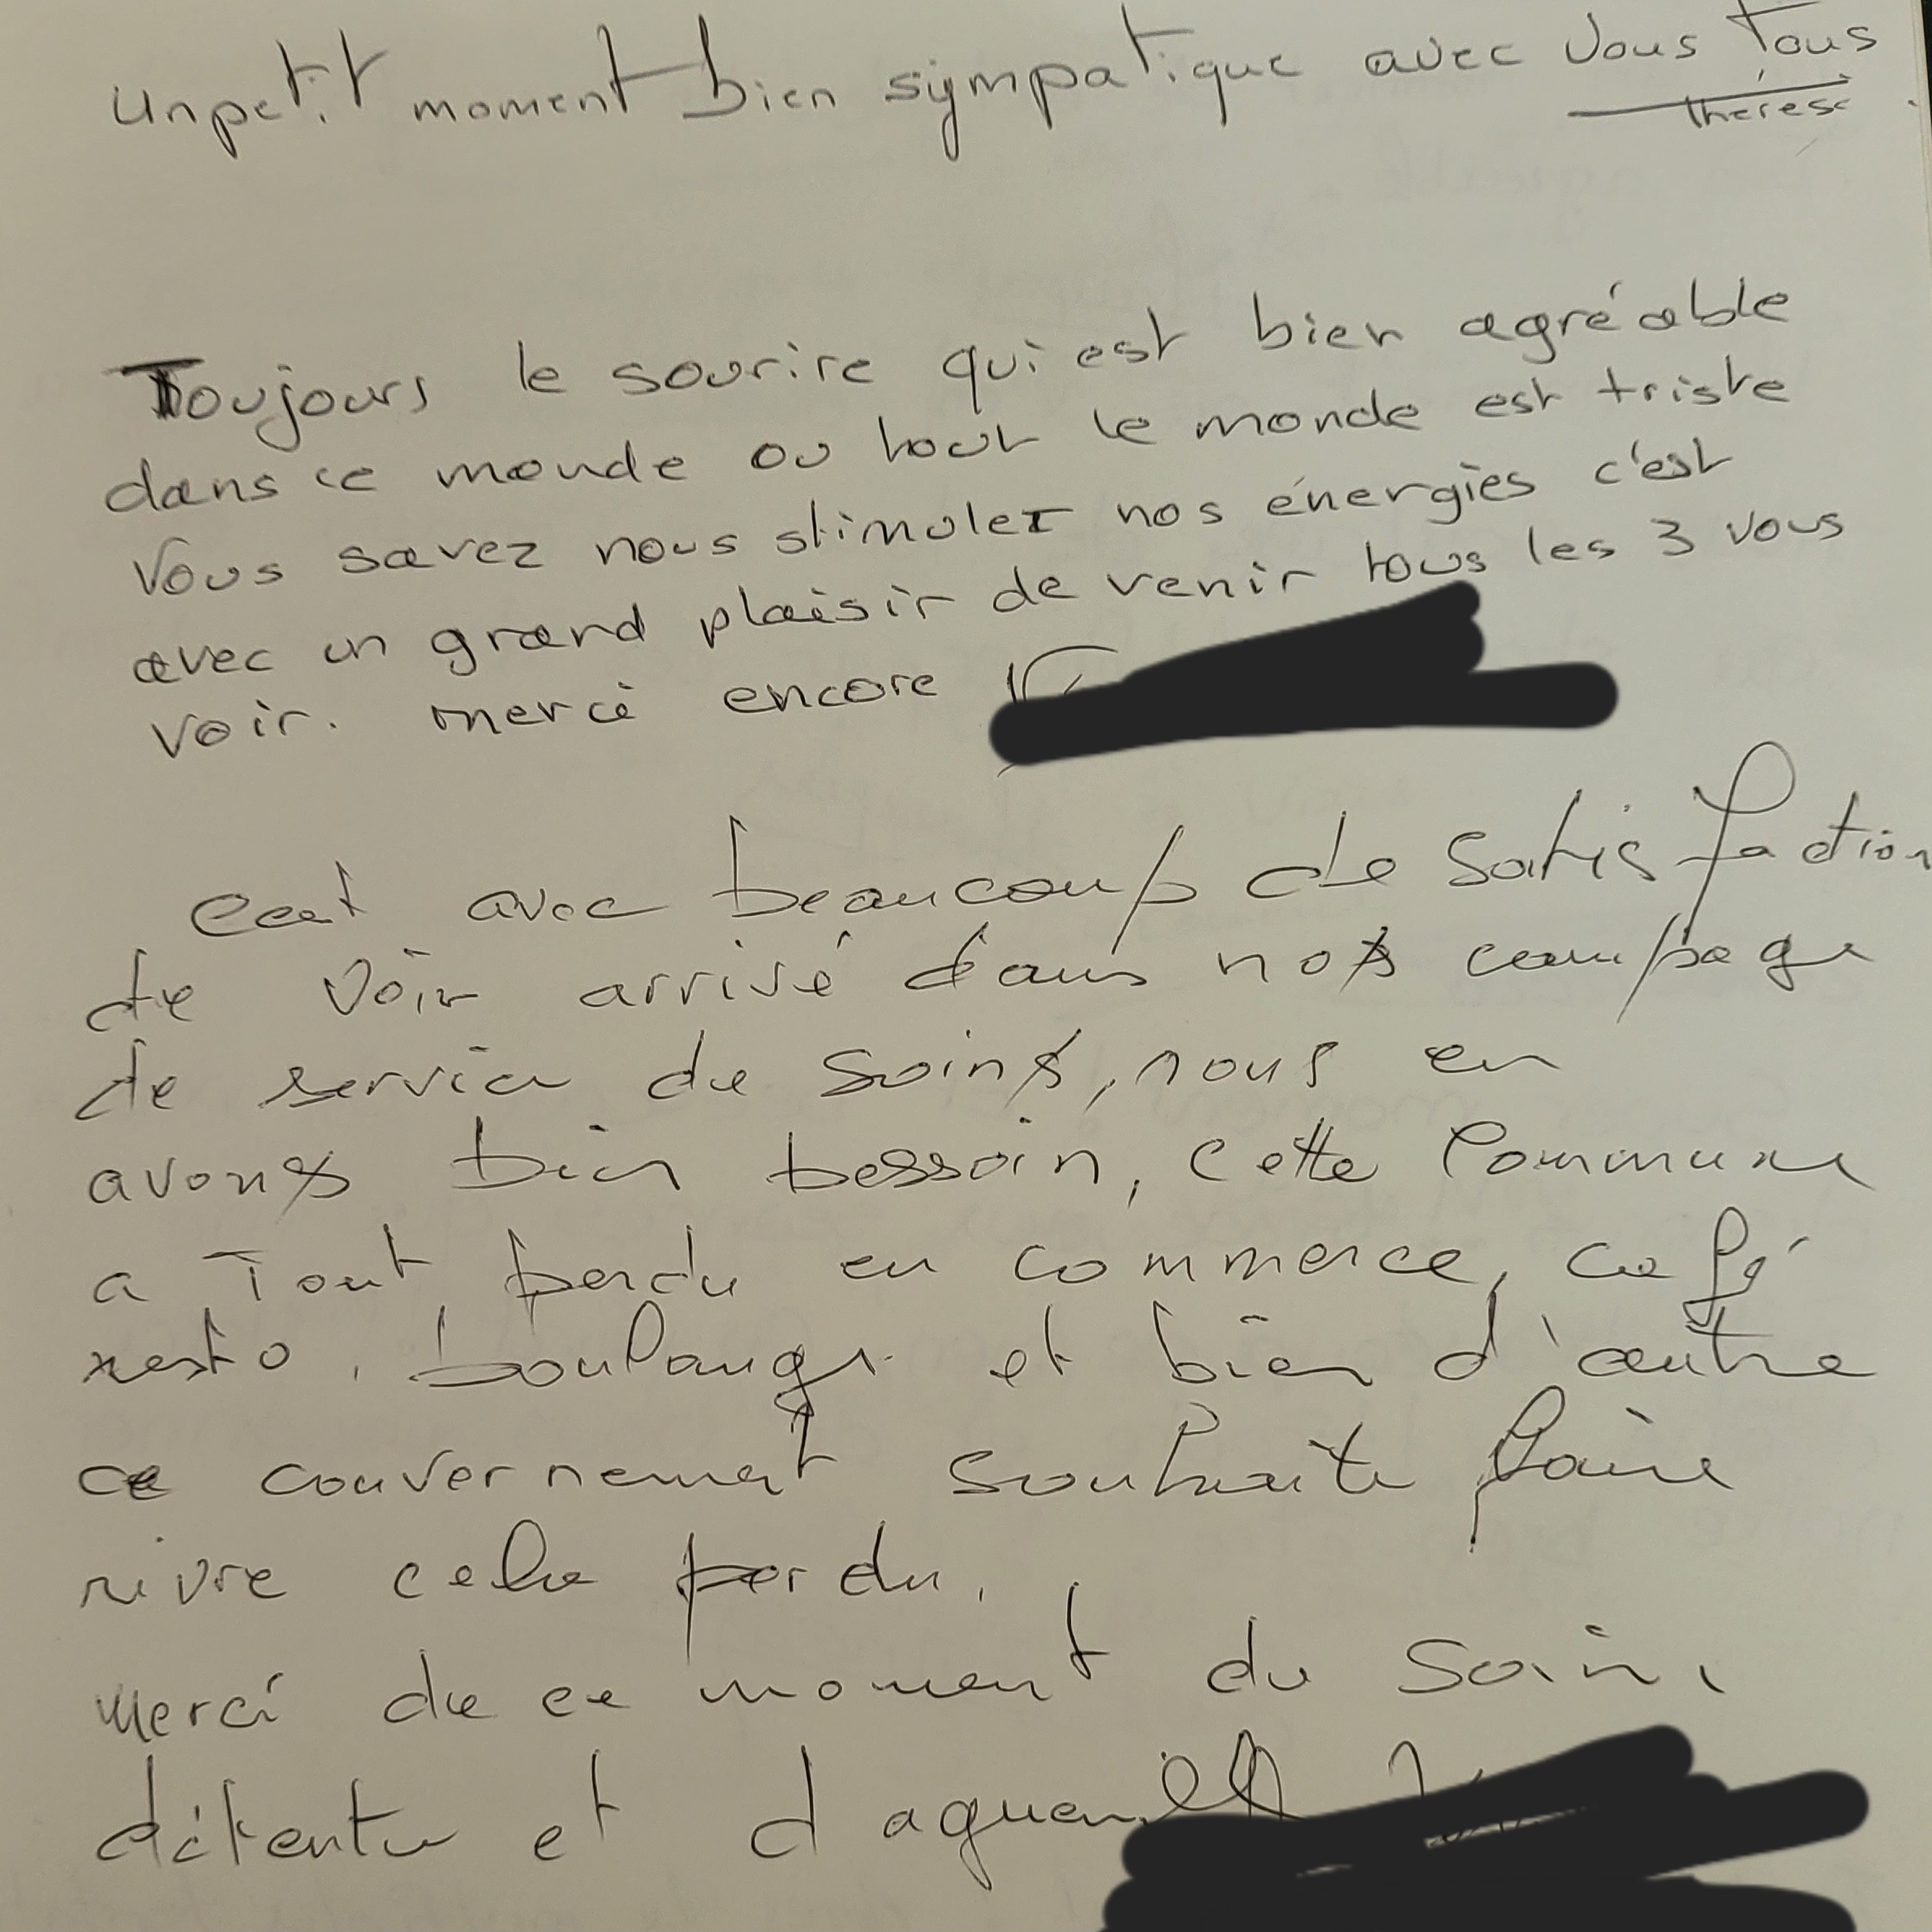 un petit moment bien sympatique avec vous tous
thérèse
Toujours le sourire qui est bien agréable
dans ce monde ou tout le monde est triste
vous savez nous stimuler nos énergies c'est
avec un grand plaisir de venir tous les 3 vous
voir. merci encore
cest avec beaucoup de satisfaction
de voir arrivé dans nos campage
de service de soins, nous en
avons bien bessoin, cette Commune
a Tout perdu en commerce, café
resto, boulange et bien d'autre
ce couvernement souhaite faire
rivre cela perdu.
Merci de ce moment de soin,
détente et d aqueuil